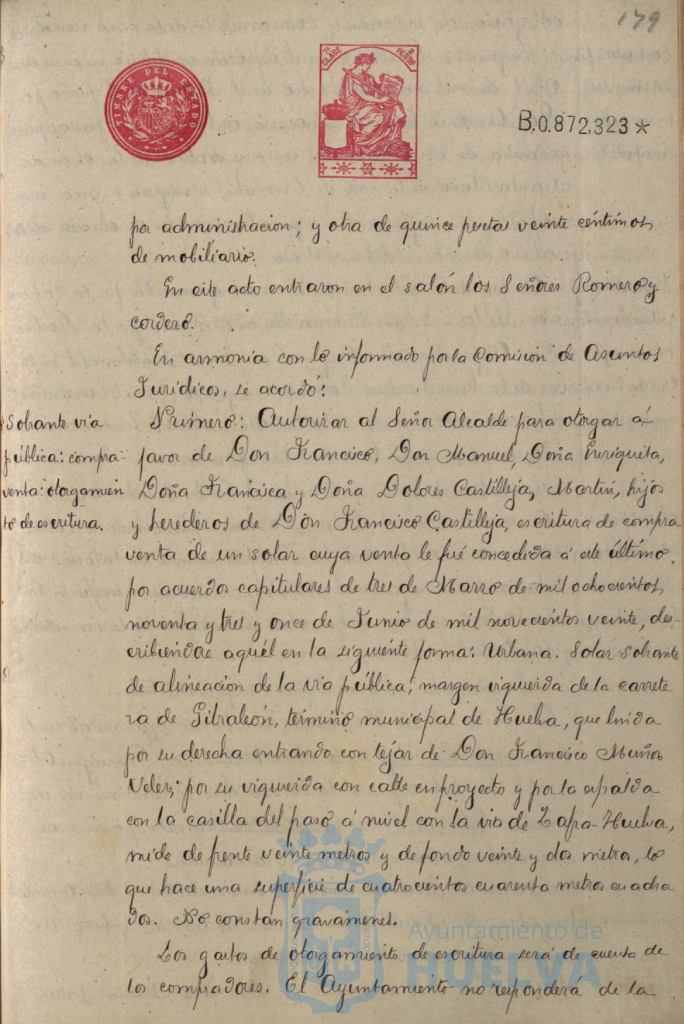 179
TIMBRE DEL ESTADO
7ª CLASE
PESETAS
B.0.872,323*
por administracion; y otra de quince pesetas veinte céntimos
de mobiliario.
En este acto entraron en el salón los Señores Romero y
Cordero.
En armonia con lo informado por la Comisión de Asuntos
Jurídicos, se acordó:
Sobrante via
pública: compra-
venta: otorgamien
to de escritura.
Primero: Autorizar al Señor Alcalde para otorgar á
favor de Don Francisco, Don Manuel, Doña Enriqueta,
Doña Francisca y Doña Dolores Castilleja, Martin, hijos
y herederos de Don Francisco Castilleja, escritura de compra
venta de un solar cuya venta le fué concedida á este último
por acuerdos capitulares de tres de Marzo de mil ochocientos
noventa y tres y once de Junio de mil novecientos veinte, des-
cribiendose aquél en la siguiente forma: Urbana. Solar sobrante
de alineacion de la via pública, margen izquierda de la carrete
ra de Gibraleón, término municipal de Huelva, que linda
por su derecha entrando con tejar de Don Francisco Muñoz
Velez; por su izquierda con calle en proyecto y por la espalda
con la casilla del paso á nivel con la via de Zafra-Huelva,
mide de frente veinte metros y de fondo veinte y dos metros, lo
que hace una superficie de cuatrocientos cuarenta metros cuadra
dos. No constan gravámenes.
Los gastos de otorgamiento de escritura será de cuenta de
los compradores. El Ayuntamiento no responderá de la
Ayuntamiento de
HUELVA